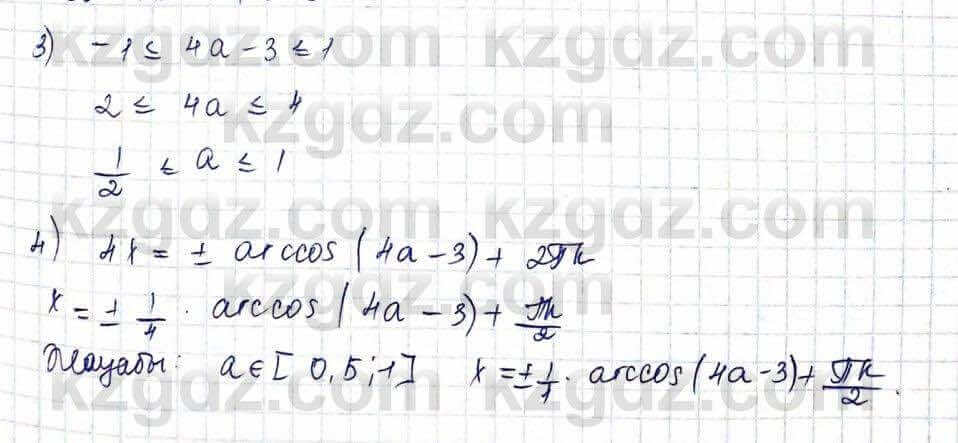 3) -1 ≤ 4a - 3 ≤ 1
2 ≤ 4a ≤ 4
1/2 ≤ a ≤ 1
4) 4x = ± arccos(4a - 3) + 2πk
x = ± 1/4 · arccos(4a - 3) + πk/2
Жауабы: a ∈ [0,5; 1] x = ± 1/1 · arccos(4a - 3) + πk/2.
kzgdz.com kzgdz.com
kzgdz.com
kzgdz.com kzgdz.com
kzgdz.com
kzgdz.com kzgdz.com